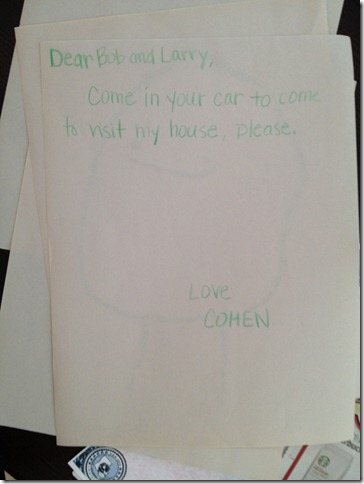 Dear Bob and Larry,
Come in your car to come
to visit my house, please.
Love
COHEN